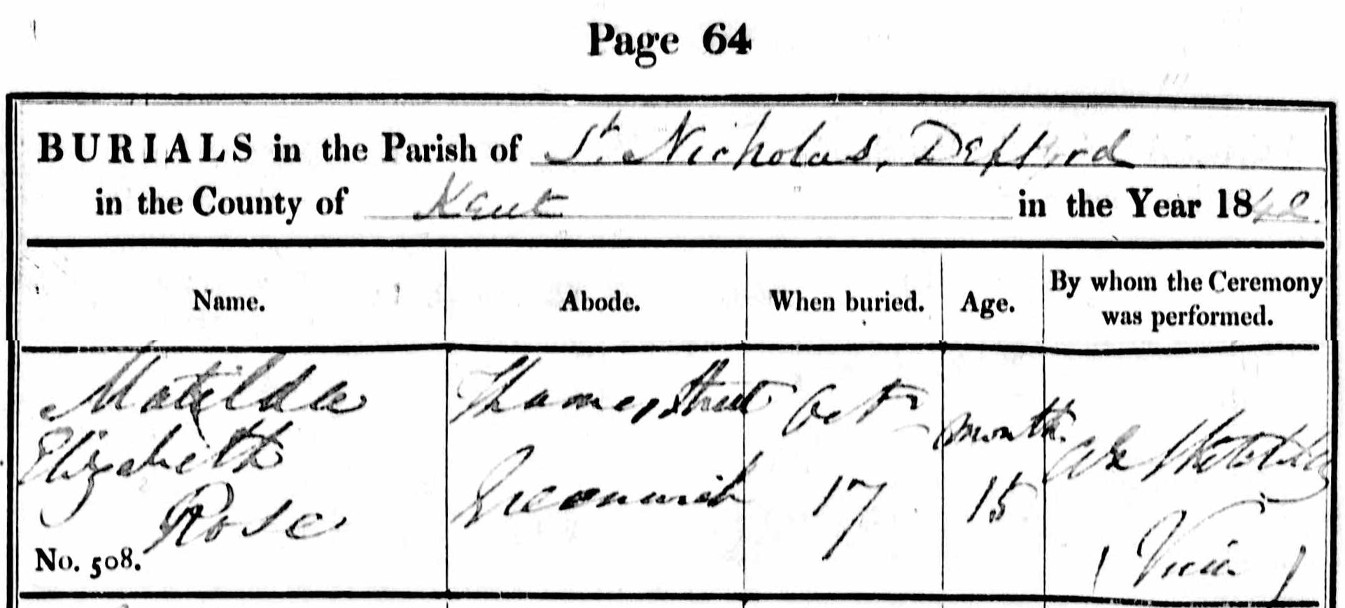 Page 64
BURIALS in the Parish of St. Nicholas, Deptford
in the County of Kent in the Year 1842.
Name. Abode. When buried. Age. By whom the Ceremony was performed.
Matilda Thames Street Oct month
Elizabeth Greenwich 17 15
Rose (Vicar)
No. 508.